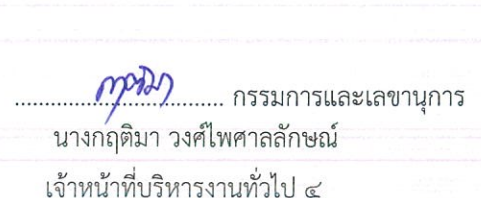 กฤติมา กรรมการและเลขานุการ
นางกฤติมา วงศ์ไพศาลลักษณ์
เจ้าหน้าที่บริหารงานทั่วไป ๔